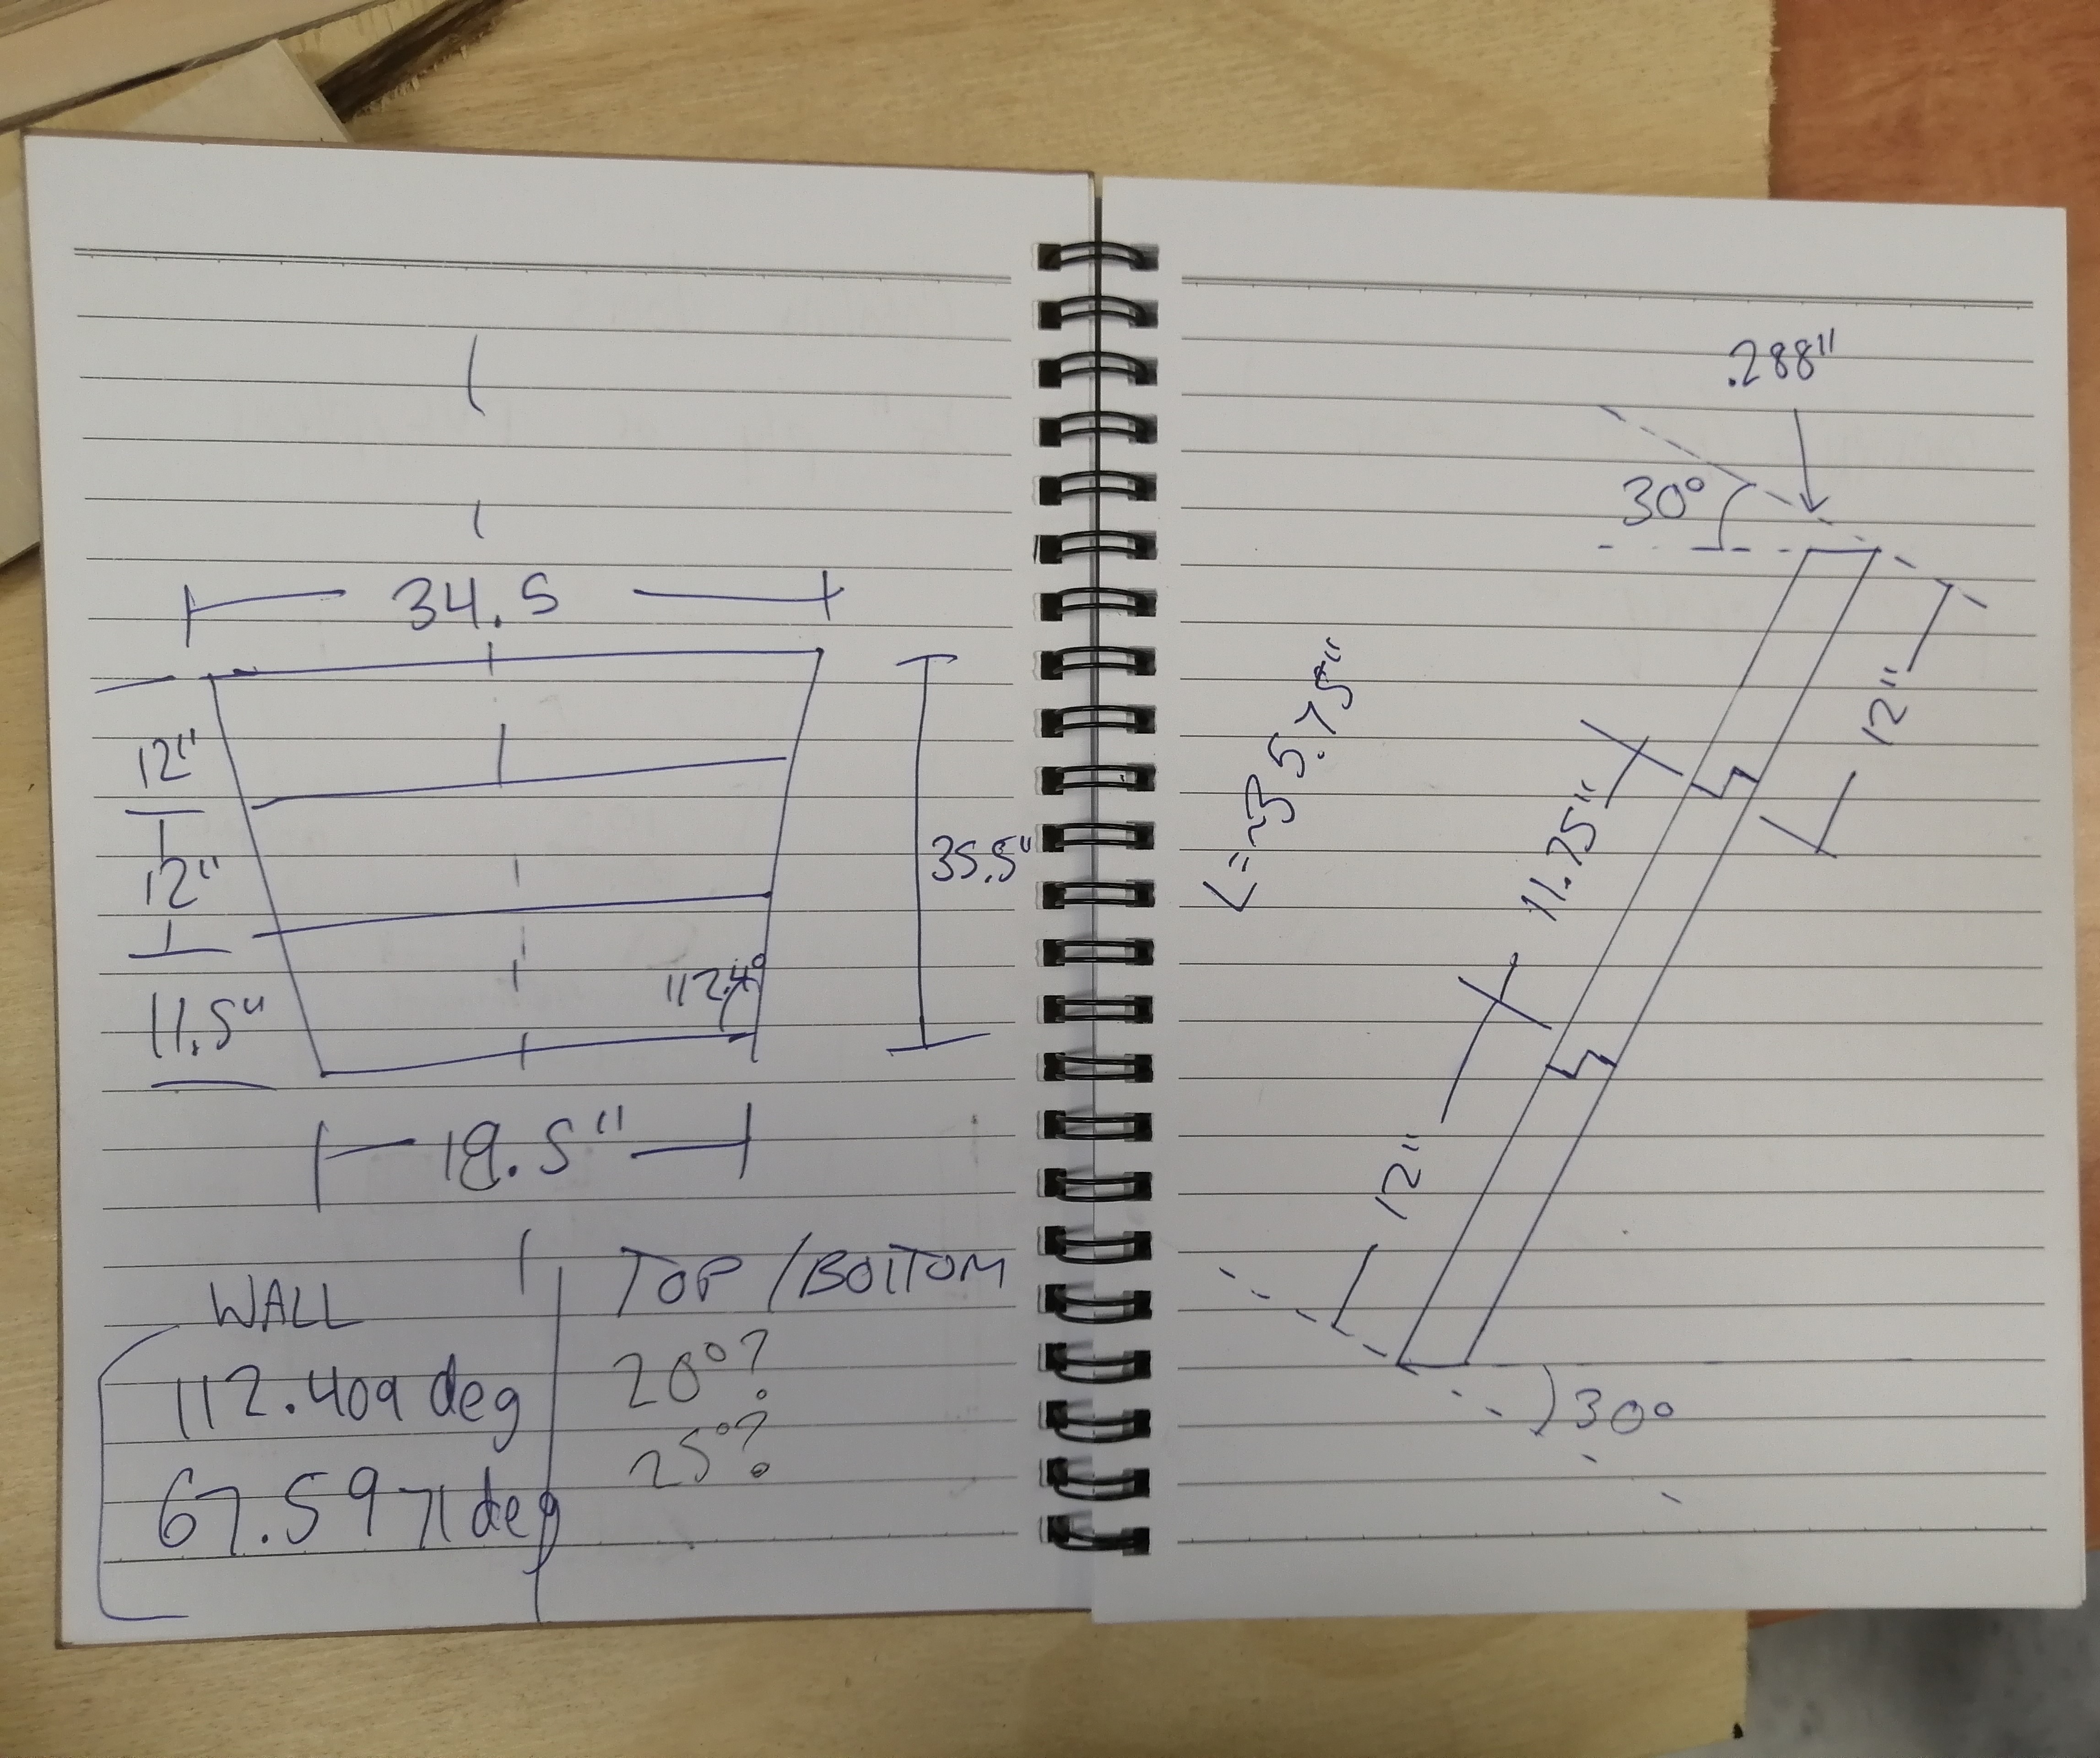 34.5
12"
12"
11.5"
35.5"
112.4°
18.5"
WALL
112.409 deg
67.5971 deg
TOP/BOTTOM
20°?
25°?
.288"
30°
12"
11.75"
12"
L=~35.75"
30°